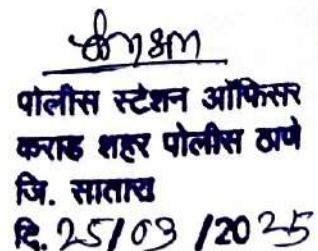 पोलीस स्टेशन ऑफिसर
कराड शहर पोलीस ठाणे
जि. सातारा
दि. 25/03/2025